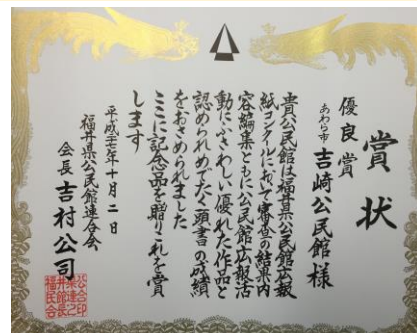 賞状
優良賞
あわら市 吉崎公民館様
貴公民館は福井県公民館広報
紙コンクールにおいて審査の結果内
容編集ともに公民館広報活
動にふさわしい優れた作品と
認められめでたく頭書の成績
をおさめられました
ここに記念品を贈りこれを賞
します
平成二十七年十月二日
福井県公民館連合会
会長 吉村公司